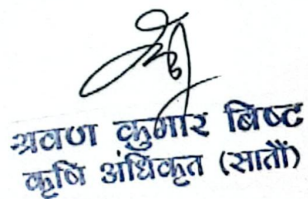 श्रवण कुमार बिष्ट
कृषि अधिकृत (सातौं)